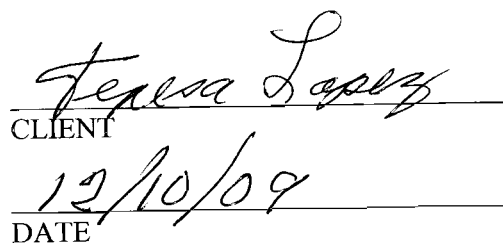 Teresa Lopez
CLIENT
12/10/09
DATE